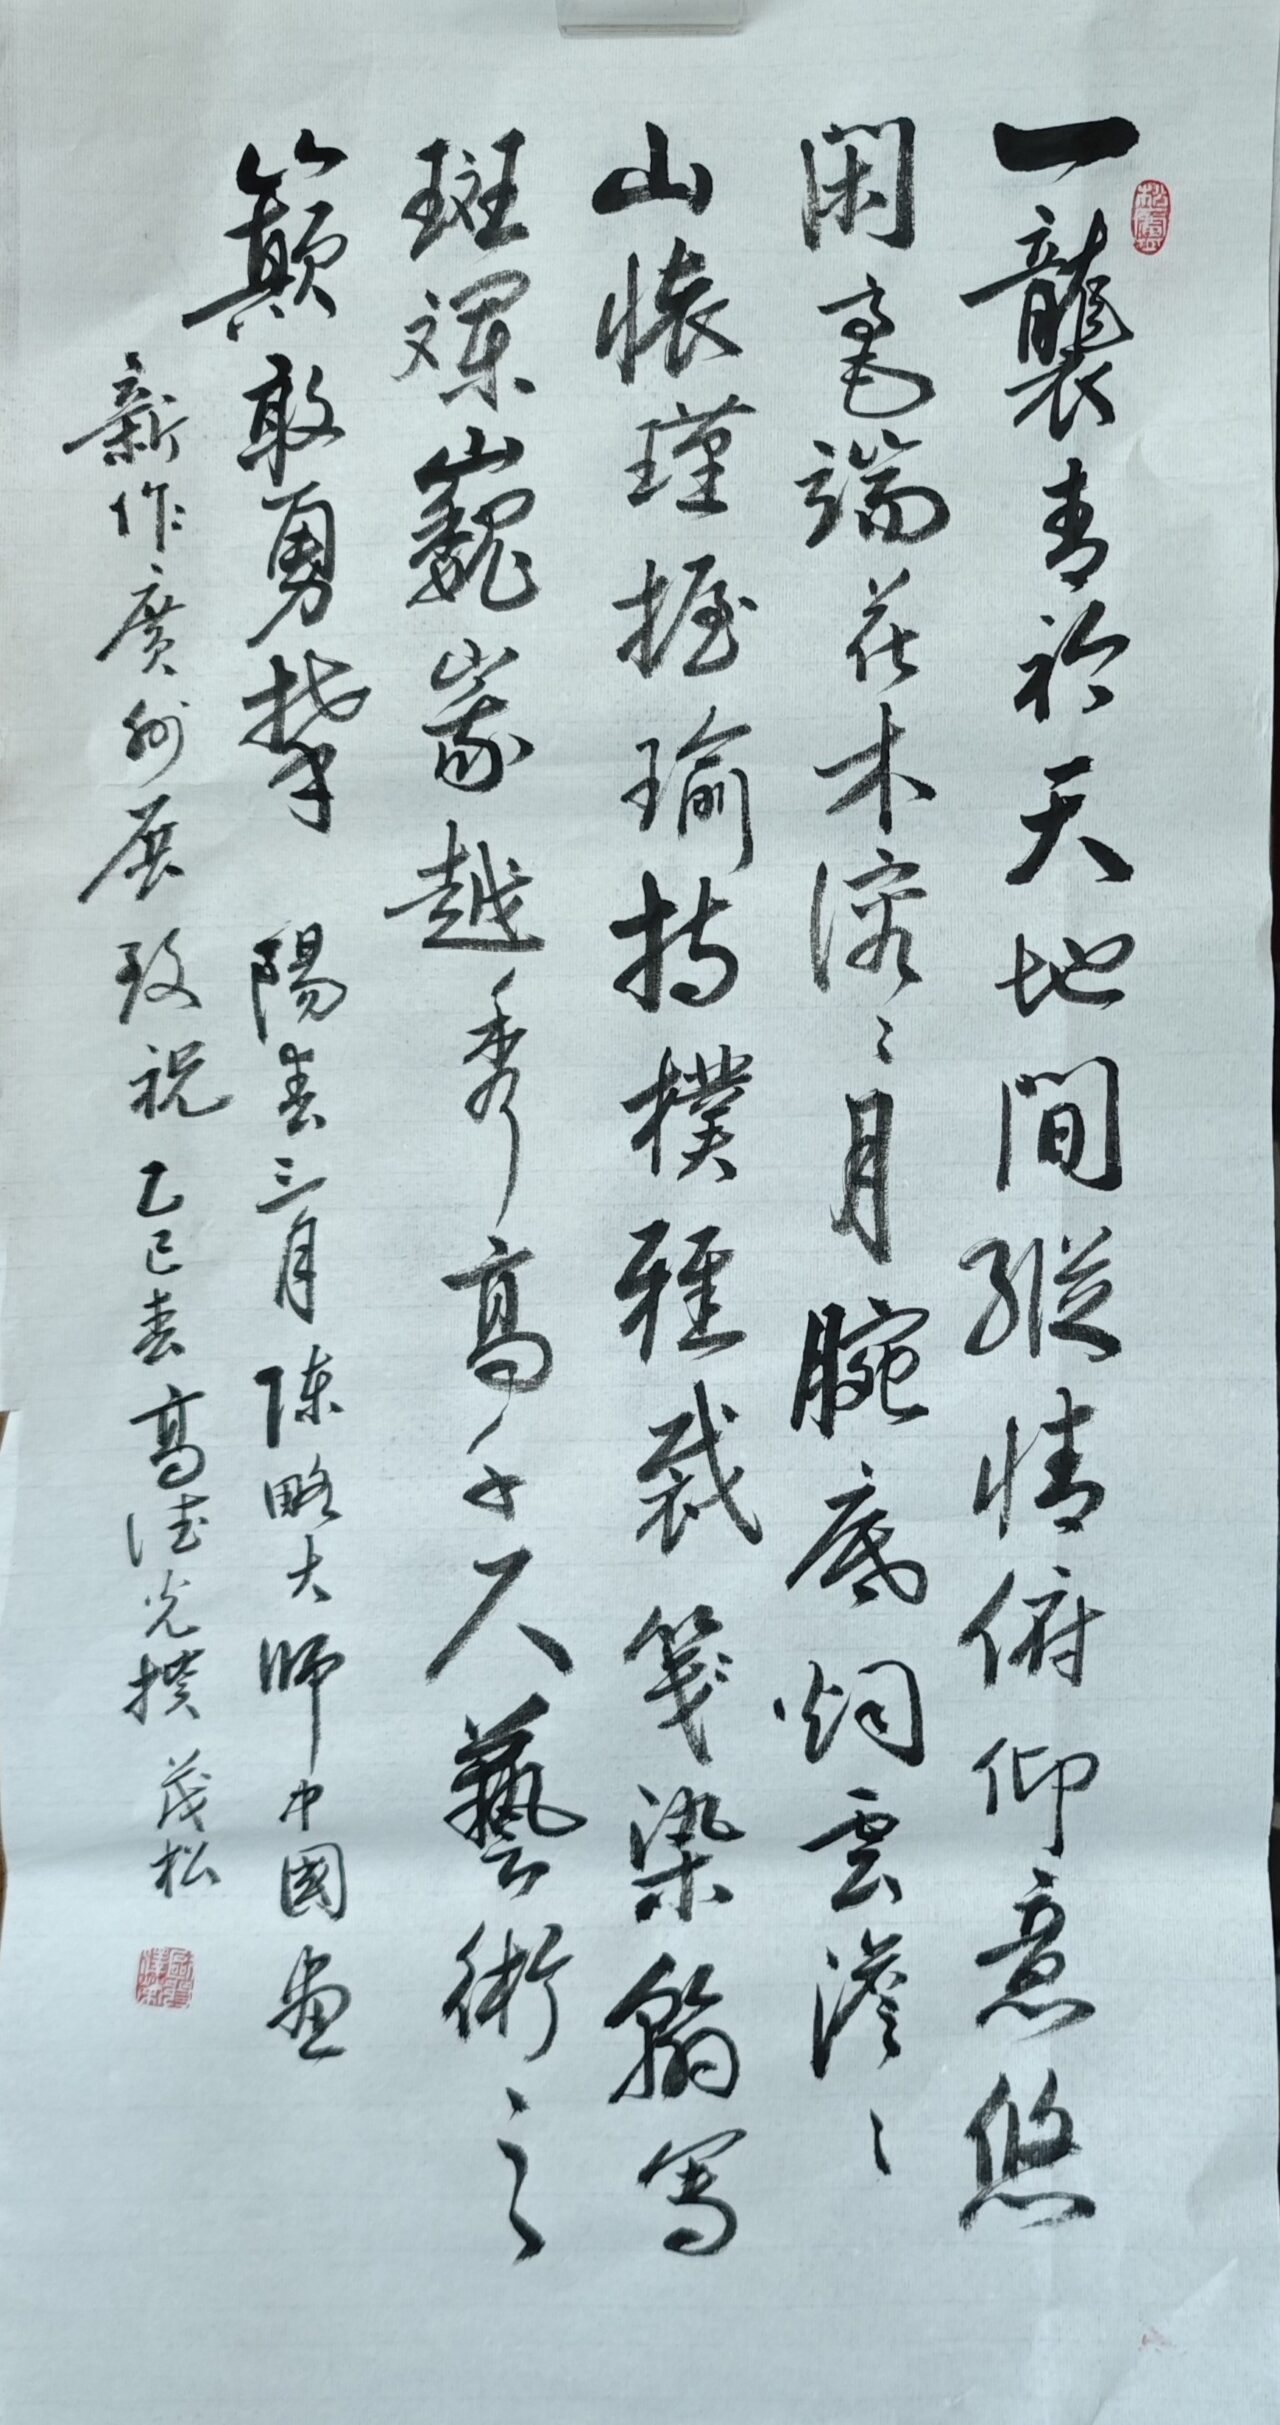 一襲青衫天地間縱情俯仰意悠
閑毫端花木溶〻月腕底烟雲澹〻
山懷瑾握瑜持樸雅裁箋染翰寫
斑斕巍峩越秀高千尺藝術之
巔敢勇攀 陽春三月陳略大師中國畫
新作廣州展致祝 乙巳春高德光撰 茂松